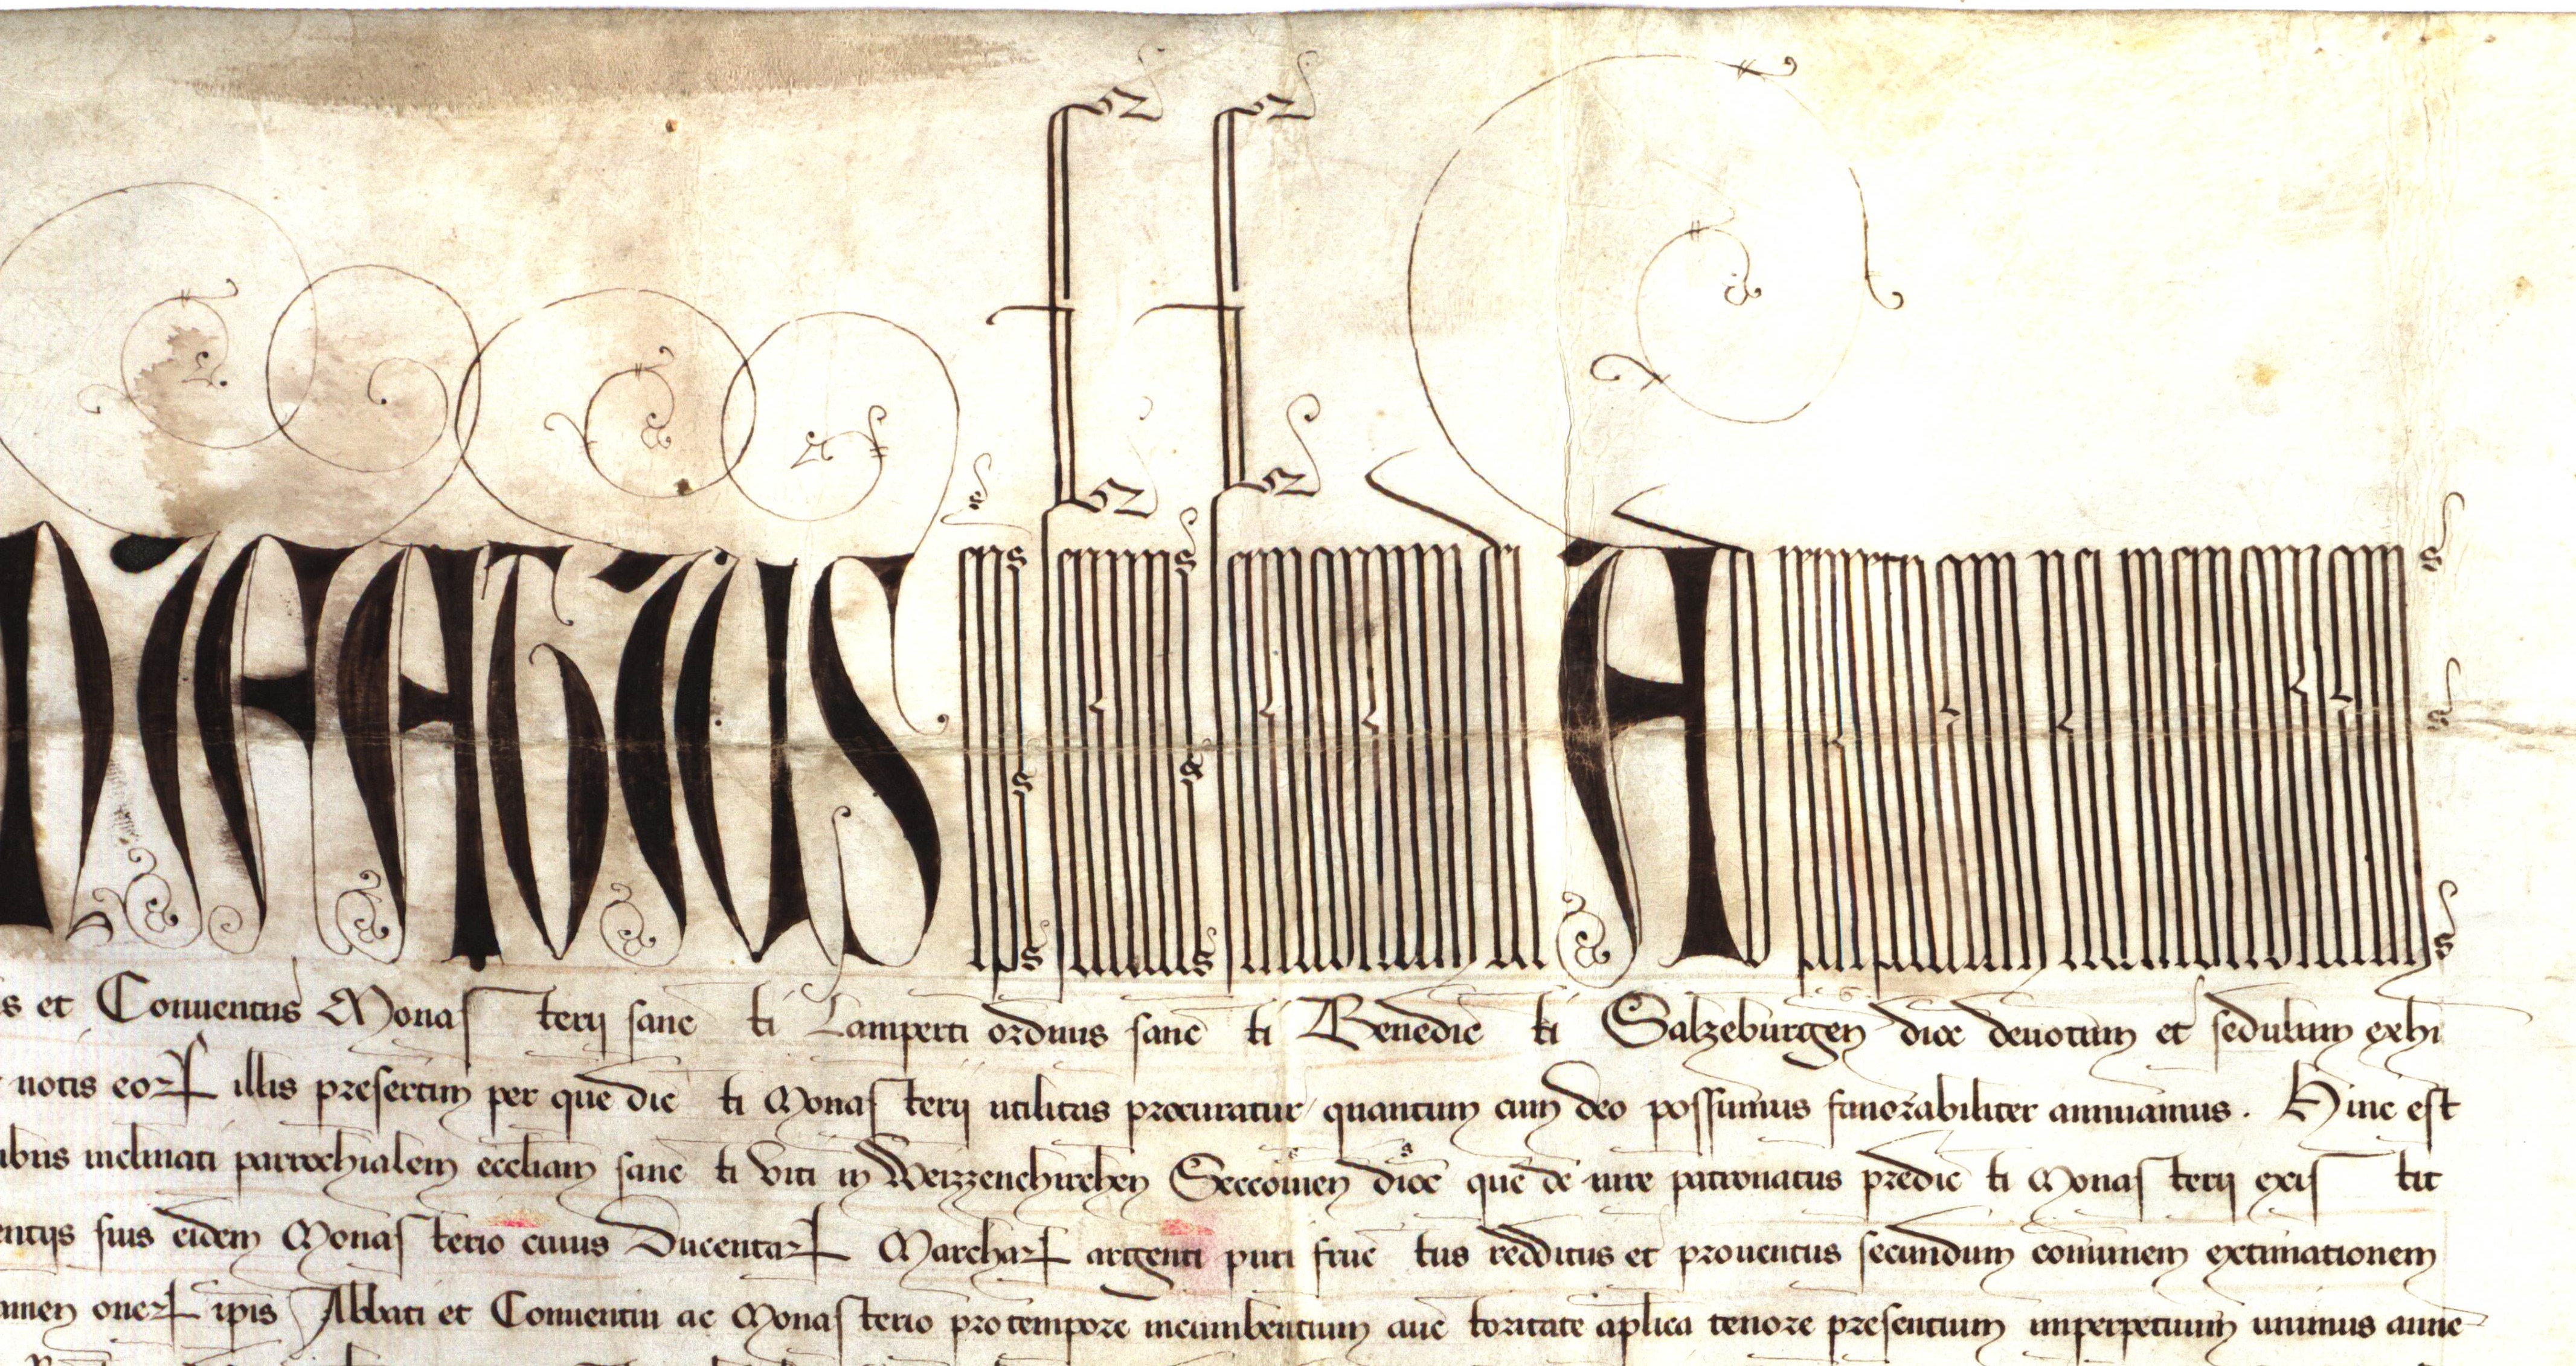 NIFATIUS ep̄s seruus seruorum dei Ad perpetuam rei memoriam
s et Conuentus Monasterij sancti Lamperti ordinis sancti Benedicti Salzeburgen̄ dioc̄ deuotum et sedulum exhi
uotis eorꝝ illis presertim per que dicti Monasterij utilitas procuratur quantum cum deo possumus fauorabiliter annuamus . Hinc est
ibus inclinati parrochialem ecclīam sancti Viti in Weizzenchirchen Seccouien̄ dioc̄ que de iure patronatus predicti Monasterij existit
entijs suis eidem Monasterio cuius Ducentarꝝ Marcharꝝ argenti puri fructus redditus et prouentus secundum cōmunem extimationem
amen onerꝝ ip̄is Abbati et Conuentui ac Monasterio pro tempore incumbentium auctoritate ap̄lica tenore presentium imperpetuum unimus annec